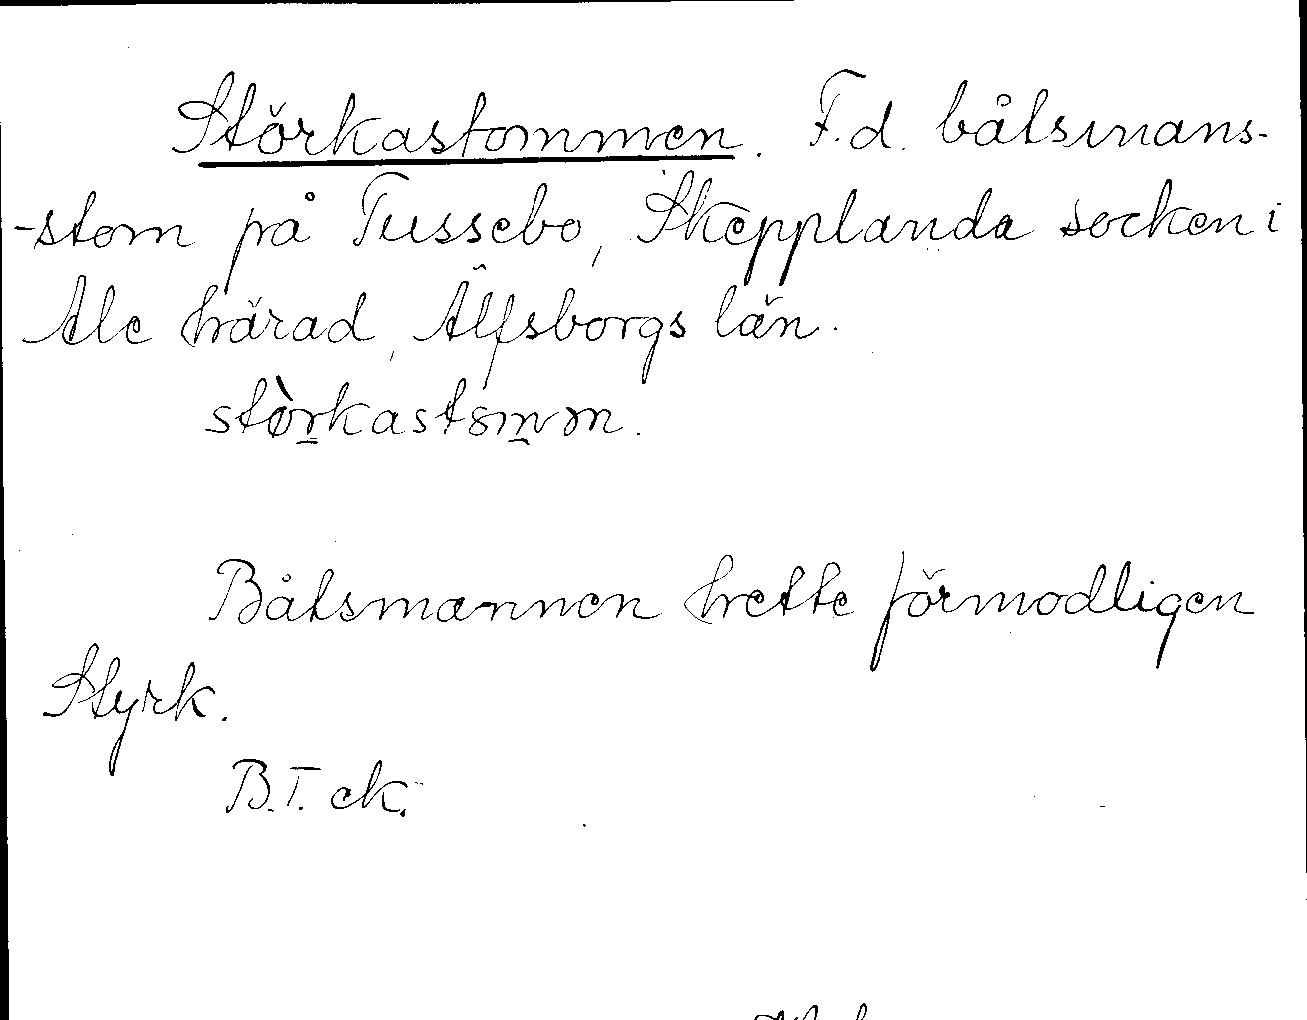 Störkastommen. F.d. båtsmans-
-stom på Tussebo, Skepplanda socken i
Ale härad, Älfsborgs län.
stòrkastomm.
Båtsmannen hette förmodligen
Styrk.
B.T. ck.